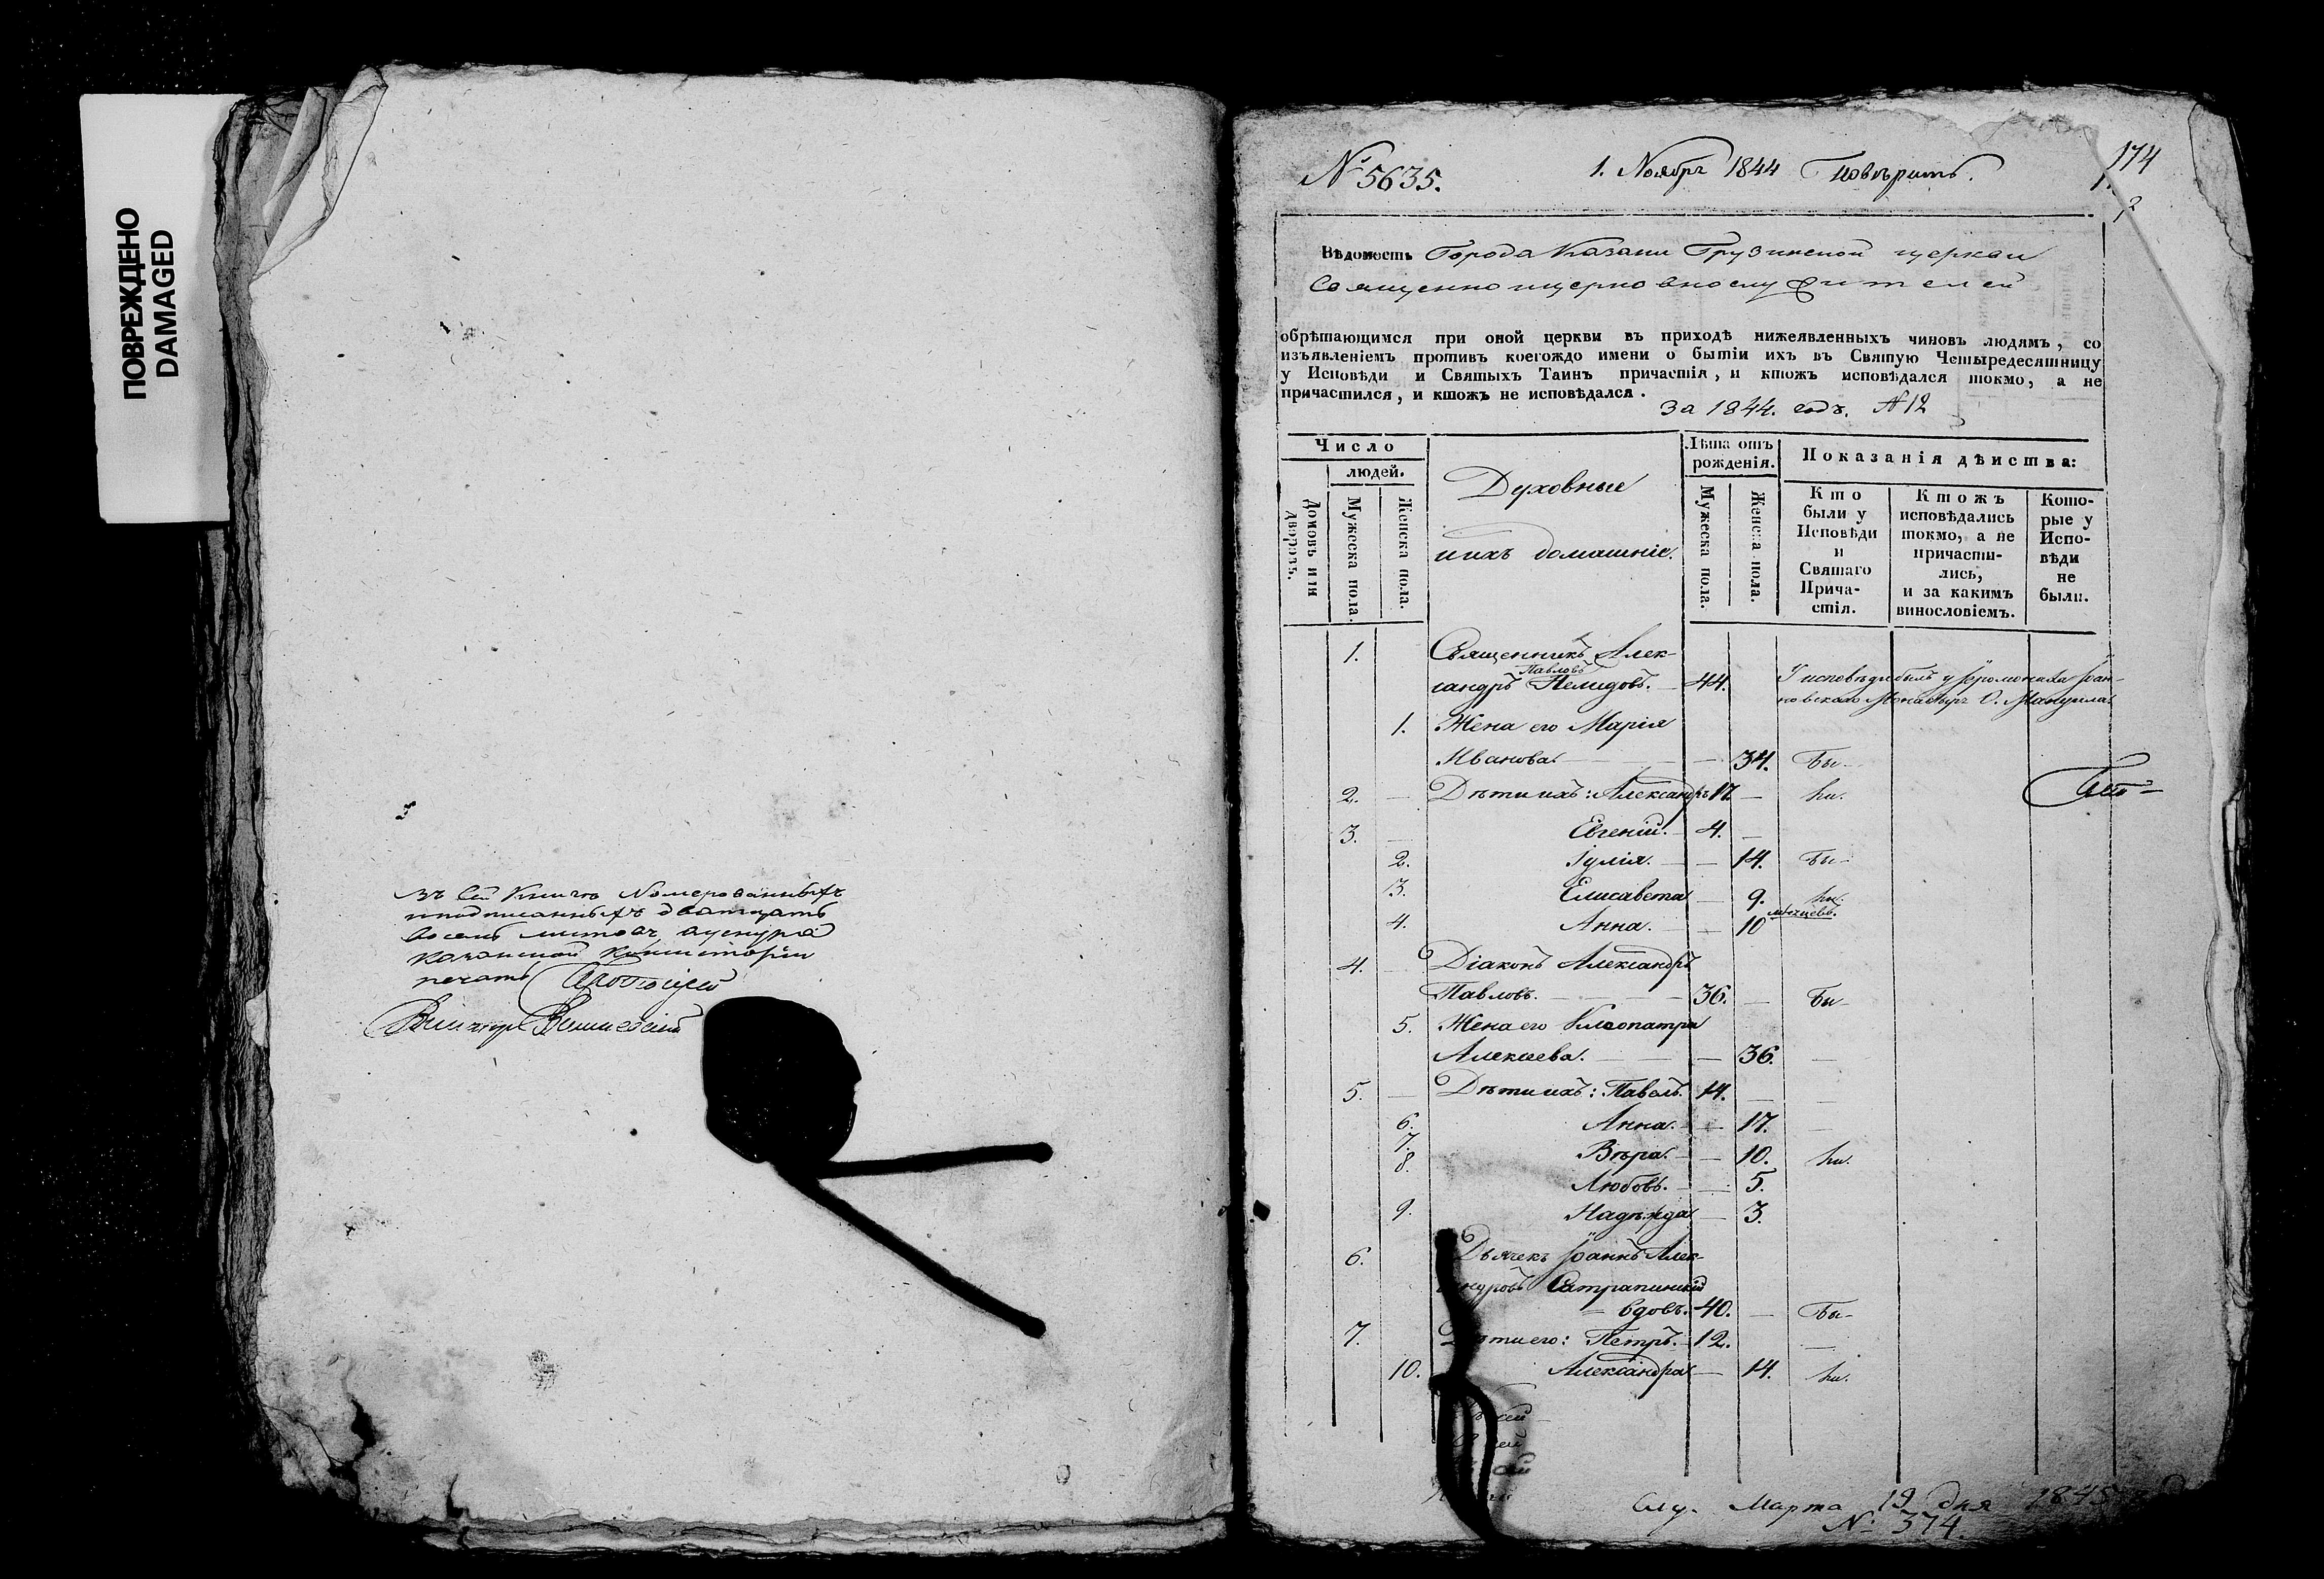 ПОВРЕЖДЕНО
DAMAGED
въ сей книгѣ номерованныхъ
и подписанныхъ дватцать
восемь листовъ, а у снура
Казанской Консисторіи
печать Протоіерей
Викторъ Вишневскій
№ 5635.
1. Ноябрь 1844 Повѣрить.
174
Вѣдомость Города Казани Грузинской церкви
Священноцерковнослужителей
обрѣтающимся при оной церкви въ приходѣ нижеявленныхъ чиновъ людямъ, со
изъявленіемъ противъ коегождо имени о бытіи ихъ въ Святую Четыредесятницу
у Исповѣди и Святыхъ Таинъ причастія, и ктожъ исповѣдался токмо, а не
причастился, и ктожъ не исповѣдался.
за 1844. годъ. № 12
Число
людей.
Домовъ или дворовъ.
Мужеска пола.
Женска пола.
Духовные
и ихъ домашніе.
Лѣта отъ рожденія.
Мужеска пола.
Женска пола.
Показанія дѣйства:
Кто были у Исповѣди и Святаго Причастія.
Ктожъ исповѣдались токмо, а не причастились, и за какимъ винословіемъ.
Которые у Исповѣди не были.
1. Священникъ Алек-
Павловъ
сандръ Нелидовъ. 44. У исповѣди былъ у Іеромонаха Іоан-
новскаго Монастыря О.
1. Жена его Марія
Иванова. 34. Бы-
2. Дѣти ихъ: Александръ 17. ли.
3. Евгеній. 4.
2. Іулія. 14. Бы-
3. Елисавета 9. ли.
4. Анна. 10 мѣсяцевъ.
4. Діаконъ Александръ
Павловъ. 36. Бы-
5. Жена его Клеопатра
Алексеева. 36.
5. Дѣти ихъ: Павелъ. 14.
6. Анна. 17.
7. Вѣра. 10. ли.
8. Любовь. 5.
9. Надежда 3.
6. Дьячекъ Іоаннъ Алек-
ндровъ Сатрапинскій
вдовъ. 40. Бы-
7. Дѣти его: Петръ. 12.
10. Александра 14. ли.
Марта 19 дня 1845
№ 374.